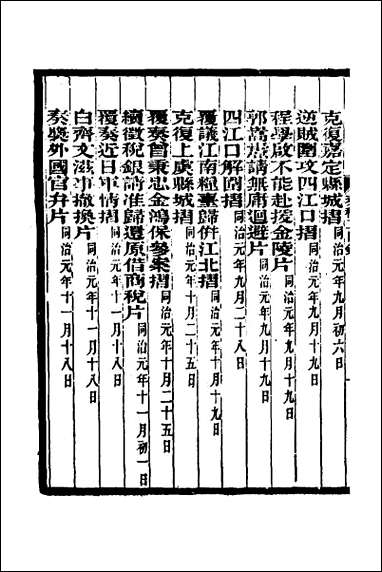 克復嘉定縣城摺同治元年九月初六日
逆賊圍攻四江口摺同治元年九月十九日
程學啟不能赴援金陵片同治元年九月十九日
郭嵩燾請無庸迴避片同治元年九月十九日
四江口解圍摺同治元年九月二十八日
覆議江南糧臺歸併江北摺同治元年九月十九日
克復上虞縣城摺同治元年十月二十五日
覆奏曾秉忠金鴻保參案摺同治元年十月二十五日
續徵稅銀請准歸還原借商稅片同治元年十一月初一日
覆奏近日軍情摺同治元年十一月十八日
白齊文滋事撤換片同治元年十一月十八日
奏獎外國官弁片同治元年十一月十八日